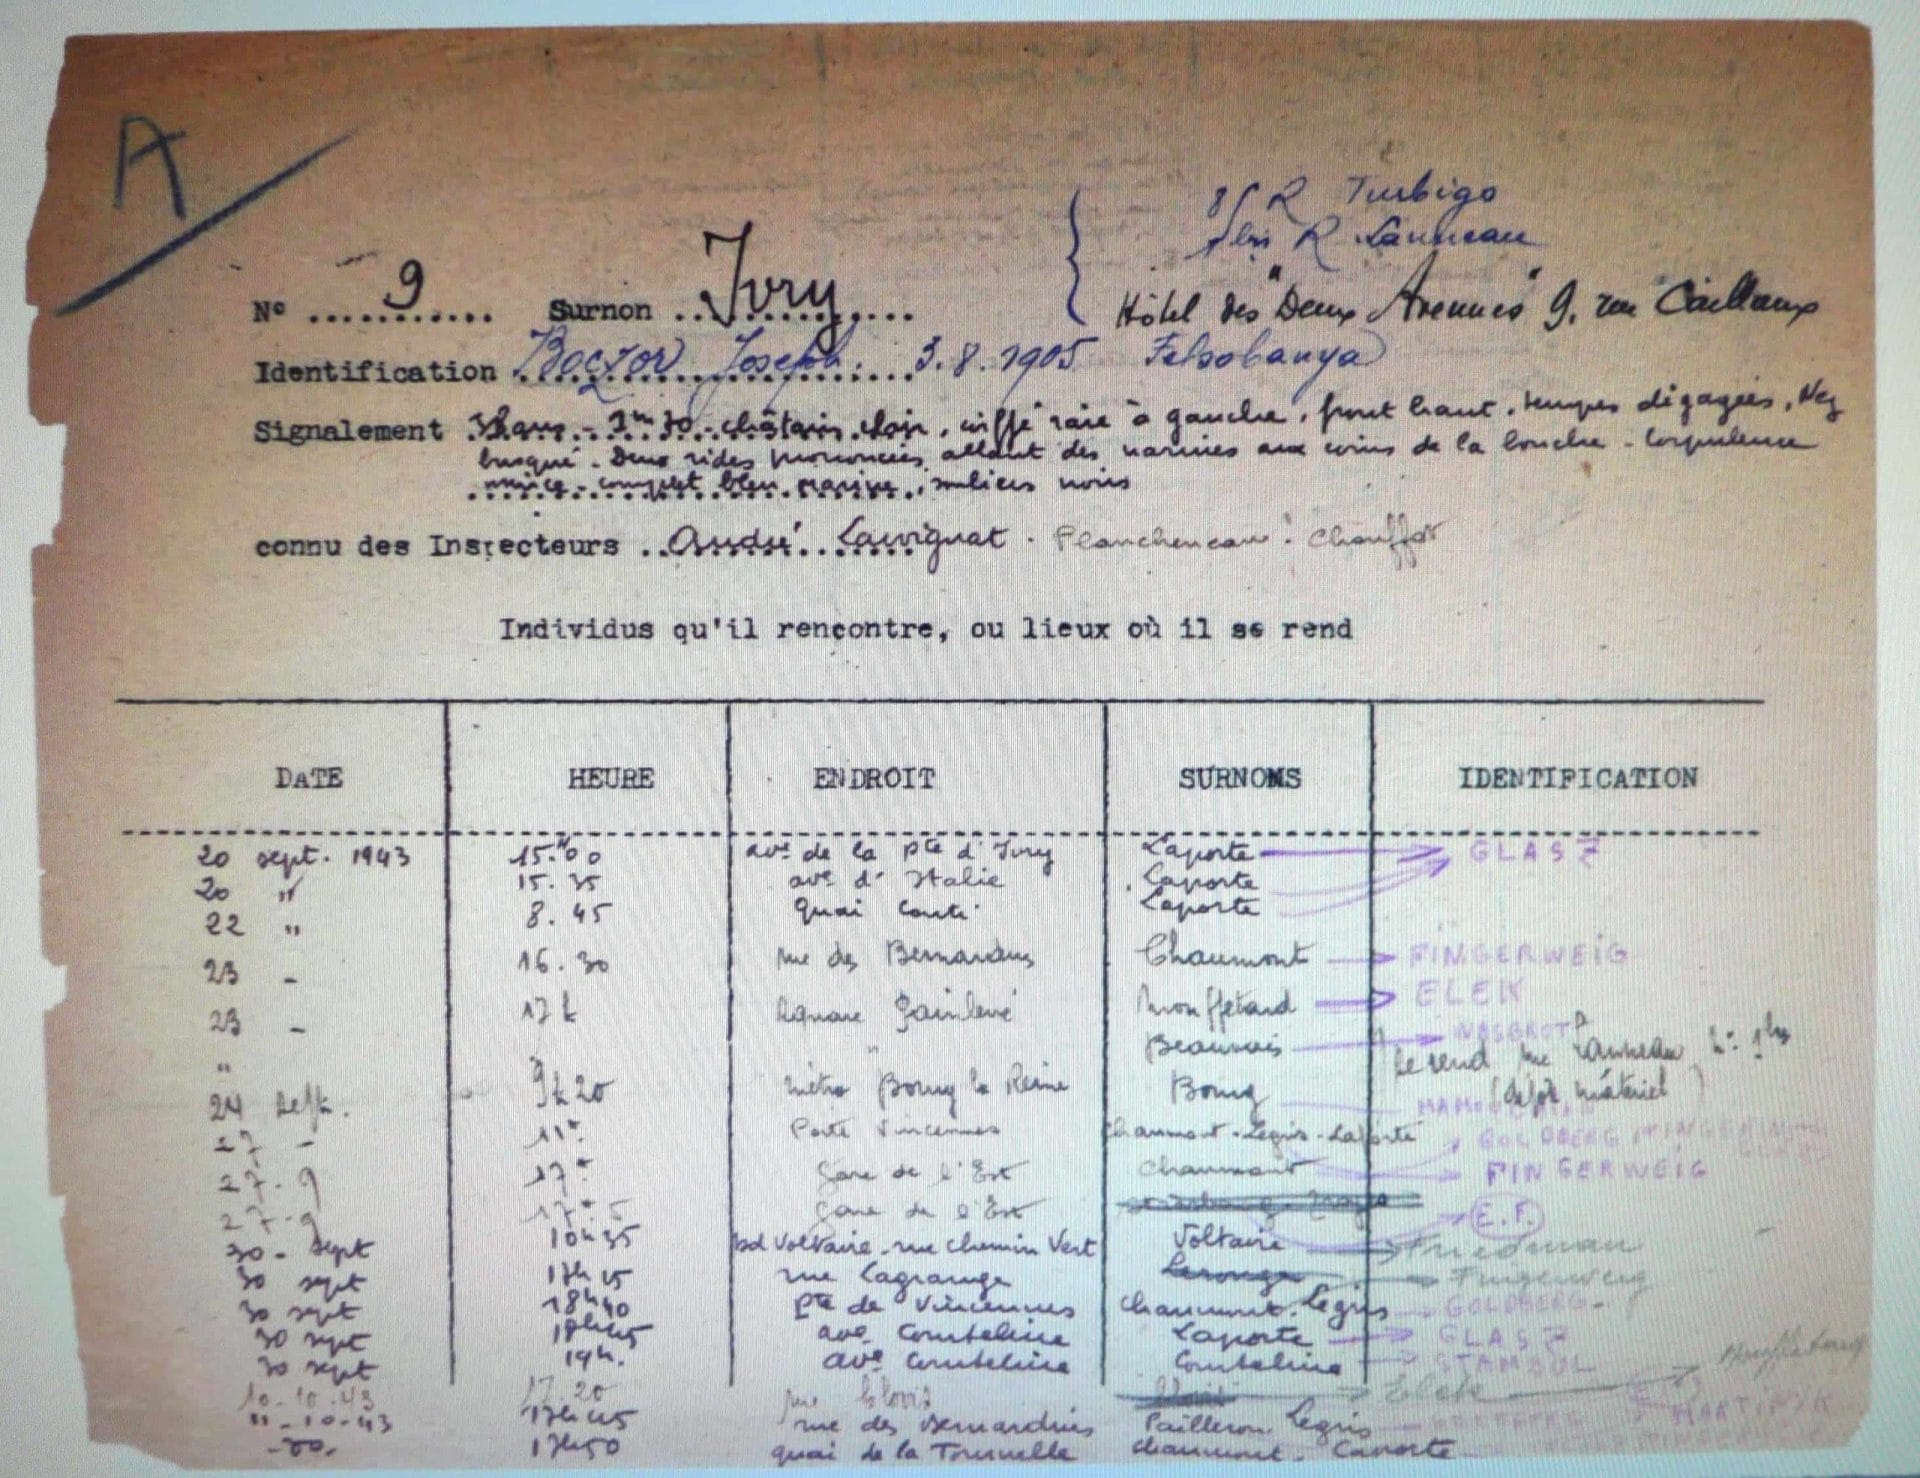 A
85 R Turbigo
1 bis R Lanneau
Hôtel des "Deux Avenues" 9, rue Caillaux
N° 9 Surnon Ivry
Identification Boczor Joseph. 3.8.1905 Felsobanya
Signalement 38 ans - 1m70 - châtain clair, coiffé raie à gauche, front haut, tempes dégagées, Nez
busqué - Deux rides prononcées allant des narines aux coins de la bouche - Corpulence
mince - complet bleu marine, souliers noirs
connu des Inspecteurs André. Lavignat. Plancheneau. Chauffot
Individus qu'il rencontre, ou lieux où il se rend
DATE HEURE ENDROIT SURNOMS IDENTIFICATION
20 sept. 1943 15.00 ave de la Pte d'Ivry Laporte GLASZ
20 " 15.35 ave d'Italie Laporte
22 " 8.45 Quai Conti Laporte
23 - 16.30 rue des Bernardins Chaumont FINGERWEIG
23 - 17h Square Painlevé Mouffetard ELEK
" Beauvais Se rend rue Lanneau n° 1 bis
24 sept. 9h20 métro Bourg la Reine Bourg (dépôt matériel)
27 - 11h Porte Vincennes Chaumont - Légris - Laporte GOLDBERG
27.9 17h Gare de l'Est Chaumont FINGERWEIG
27.9 17h5 Gare de l'Est E.F.
30 - sept 10h35 bd Voltaire - rue Chemin Vert Voltaire Friedman
30 sept 17h15 rue Lagrange Fingerweig
30 sept 18h40 Pte de Vincennes Chaumont. Légris GOLDBERG
30 sept 18h45 ave Courteline Laporte GLASZ
30 sept 19h. ave Courteline Courteline STAMBUL
10.10.43 17.20 rue Clovis Elek
" - 10-43 17h45 rue des Bernardins Pailleron. Légris MARTINIUK
17h50 quai de la Tournelle Chaumont. Laporte